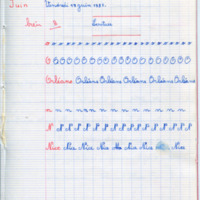 Juin Vendredi 19 juin 1931.
Série B Écriture
o o o o o o o o o o o o o o o o
O O O O O O O O O O O O O O
Orléans Orléans Orléans Orléans Orléans Orléans
n n n n n n n n n n n n
N N N N N N N N N N N
Nice Nice Nice Nice Nice Nice Nice